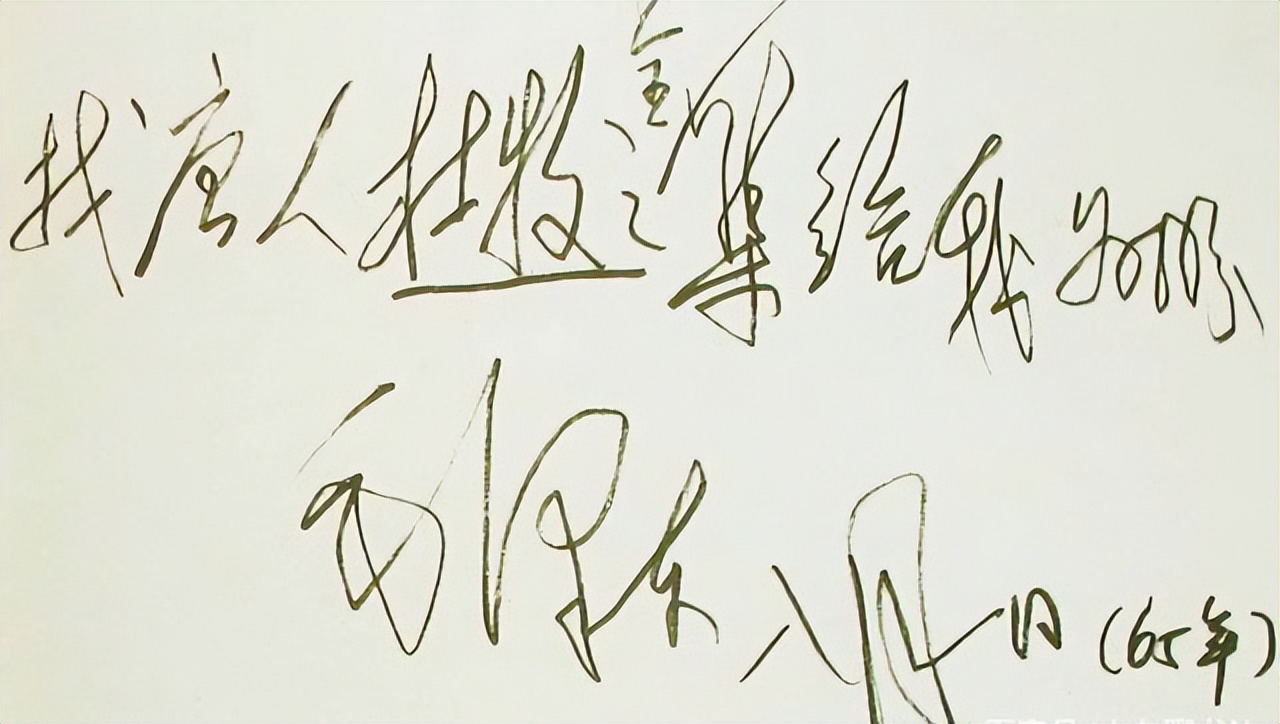 找唐人杜牧之全集给我为盼
毛泽东 八月一日 (65年)